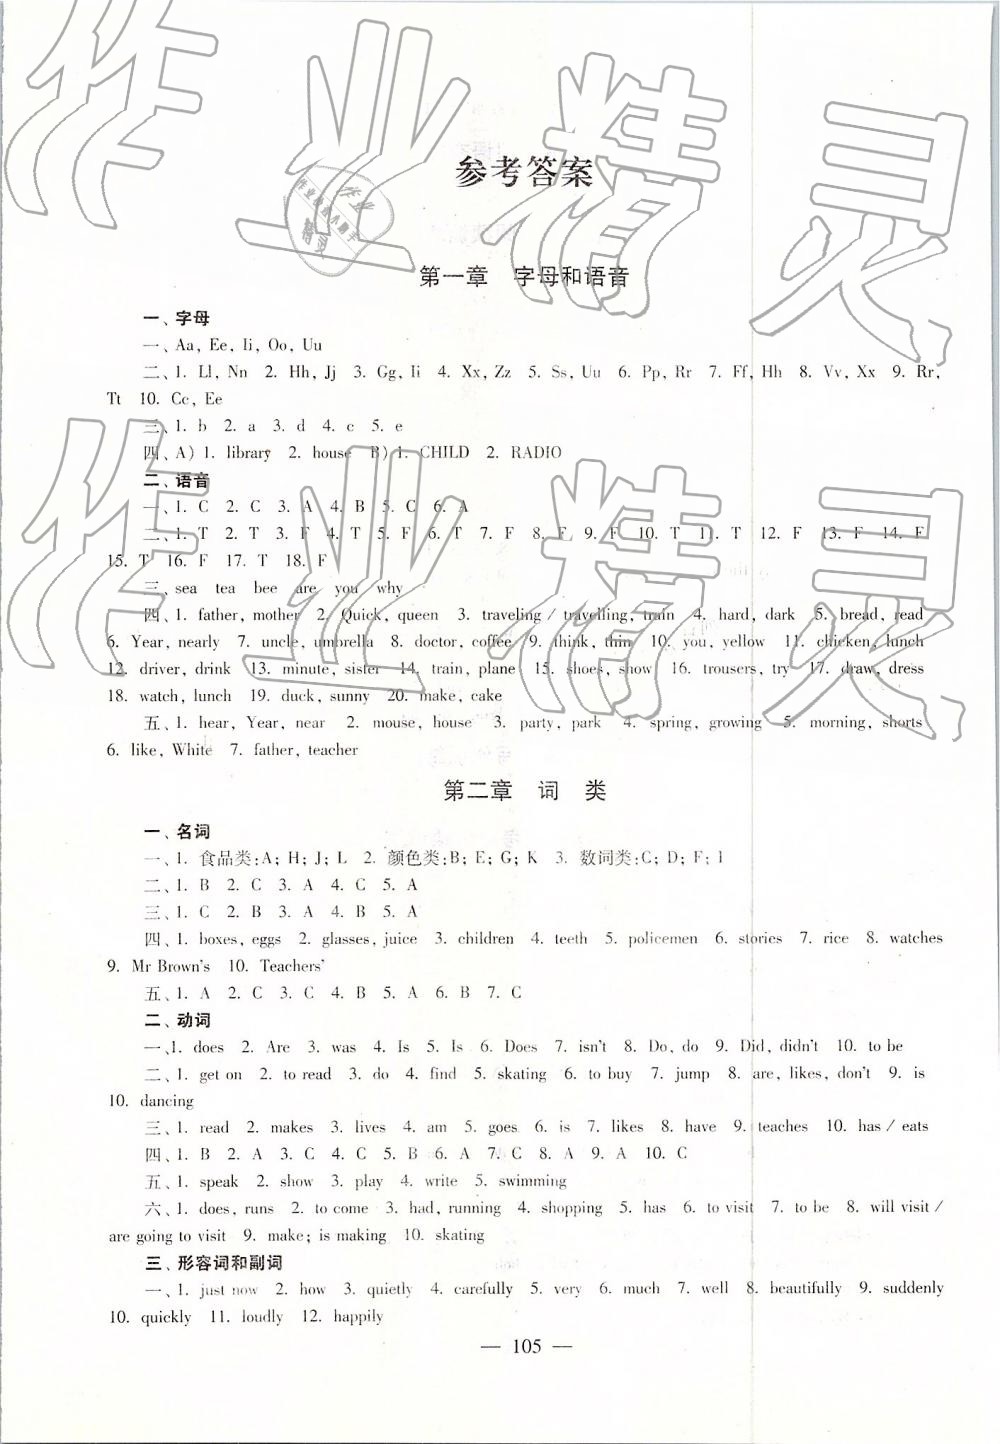 参考答案
第一章 字母和语音
一、字母
一、Aa, Ee, Ii, Oo, Uu
二、1. Ll, Nn 2. Hh, Jj 3. Gg, Ii 4. Xx, Zz 5. Ss, Uu 6. Pp, Rr 7. Ff, Hh 8. Vv, Xx 9. Rr,
Tt 10. Cc, Ee
三、1. b 2. a 3. d 4. c 5. e
四、A) 1. library 2. house B) 1. CHILD 2. RADIO
二、语音
一、1. C 2. C 3. A 4. B 5. C 6. A
二、1. T 2. T 3. F 4. T 5. F 6. T 7. F 8. F 9. F 10. T 11. T 12. F 13. F 14. F
15. T 16. F 17. T 18. F
三、sea tea bee are you why
四、1. father, mother 2. Quick, queen 3. traveling / travelling, train 4. hard, dark 5. bread, read
6. Year, nearly 7. uncle, umbrella 8. doctor, coffee 9. think, thin 10. you, yellow 11. chicken, lunch
12. driver, drink 13. minute, sister 14. train, plane 15. shoes, show 16. trousers, try 17. draw, dress
18. watch, lunch 19. duck, sunny 20. make, cake
五、1. hear, Year, near 2. mouse, house 3. party, park 4. spring, growing 5. morning, shorts
6. like, White 7. father, teacher
第二章 词 类
一、名词
一、1. 食品类:A; H; J; L 2. 颜色类:B; E; G; K 3. 数词类:C; D; F; I
二、1. B 2. C 3. A 4. C 5. A
三、1. C 2. B 3. A 4. B 5. A
四、1. boxes, eggs 2. glasses, juice 3. children 4. teeth 5. policemen 6. stories 7. rice 8. watches
9. Mr Brown's 10. Teachers'
五、1. A 2. C 3. C 4. B 5. A 6. B 7. C
二、动词
一、1. does 2. Are 3. was 4. Is 5. Is 6. Does 7. isn't 8. Do, do 9. Did, didn't 10. to be
二、1. get on 2. to read 3. do 4. find 5. skating 6. to buy 7. jump 8. are, likes, don't 9. is
10. dancing
三、1. read 2. makes 3. lives 4. am 5. goes 6. is 7. likes 8. have 9. teaches 10. has / eats
四、1. B 2. A 3. C 4. C 5. B 6. A 7. C 8. A 9. A 10. C
五、1. speak 2. show 3. play 4. write 5. swimming
六、1. does, runs 2. to come 3. had, running 4. shopping 5. has 6. to visit 7. to be 8. will visit /
are going to visit 9. make; is making 10. skating
三、形容词和副词
一、1. just now 2. how 3. quietly 4. carefully 5. very 6. much 7. well 8. beautifully 9. suddenly
10. quickly 11. loudly 12. happily
— 105 —
作业精灵
作业精灵